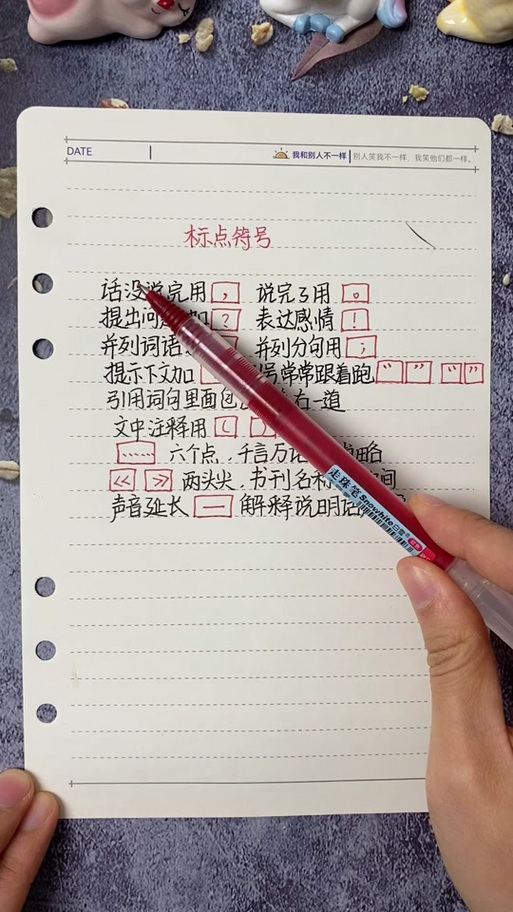 DATE
我和别人不一样 别人笑我不一样，我笑他们都一样。
标点符号
话没说完用 ， 说完了用 。
提出问 加 ？ 表达感情 ！
并列词语 并列分句用 ；
提示下文加 号常常跟着跑 “ ” “ ”
引用词句里面包 右一道
文中注释用 （ ）
…… 六个点，千言万语 略
《 》 两头尖，书刊名称 间
声音延长 — 解释说明
走珠笔 Snowhite 白雪